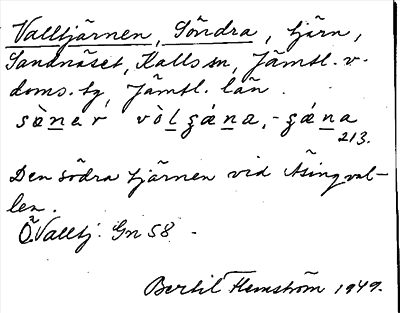 Valltjärnen, Söndra, tjärn,
Sandnäset, Kalls sn, Jämtl. v.
doms. tg, Jämtl. län.
sö̀ner vòlgána, -gána
213.
Den södra tjärnen vid Åsingval-
len.
Ö. Valltj. Gn 58.
Bertil Flemström 1949.